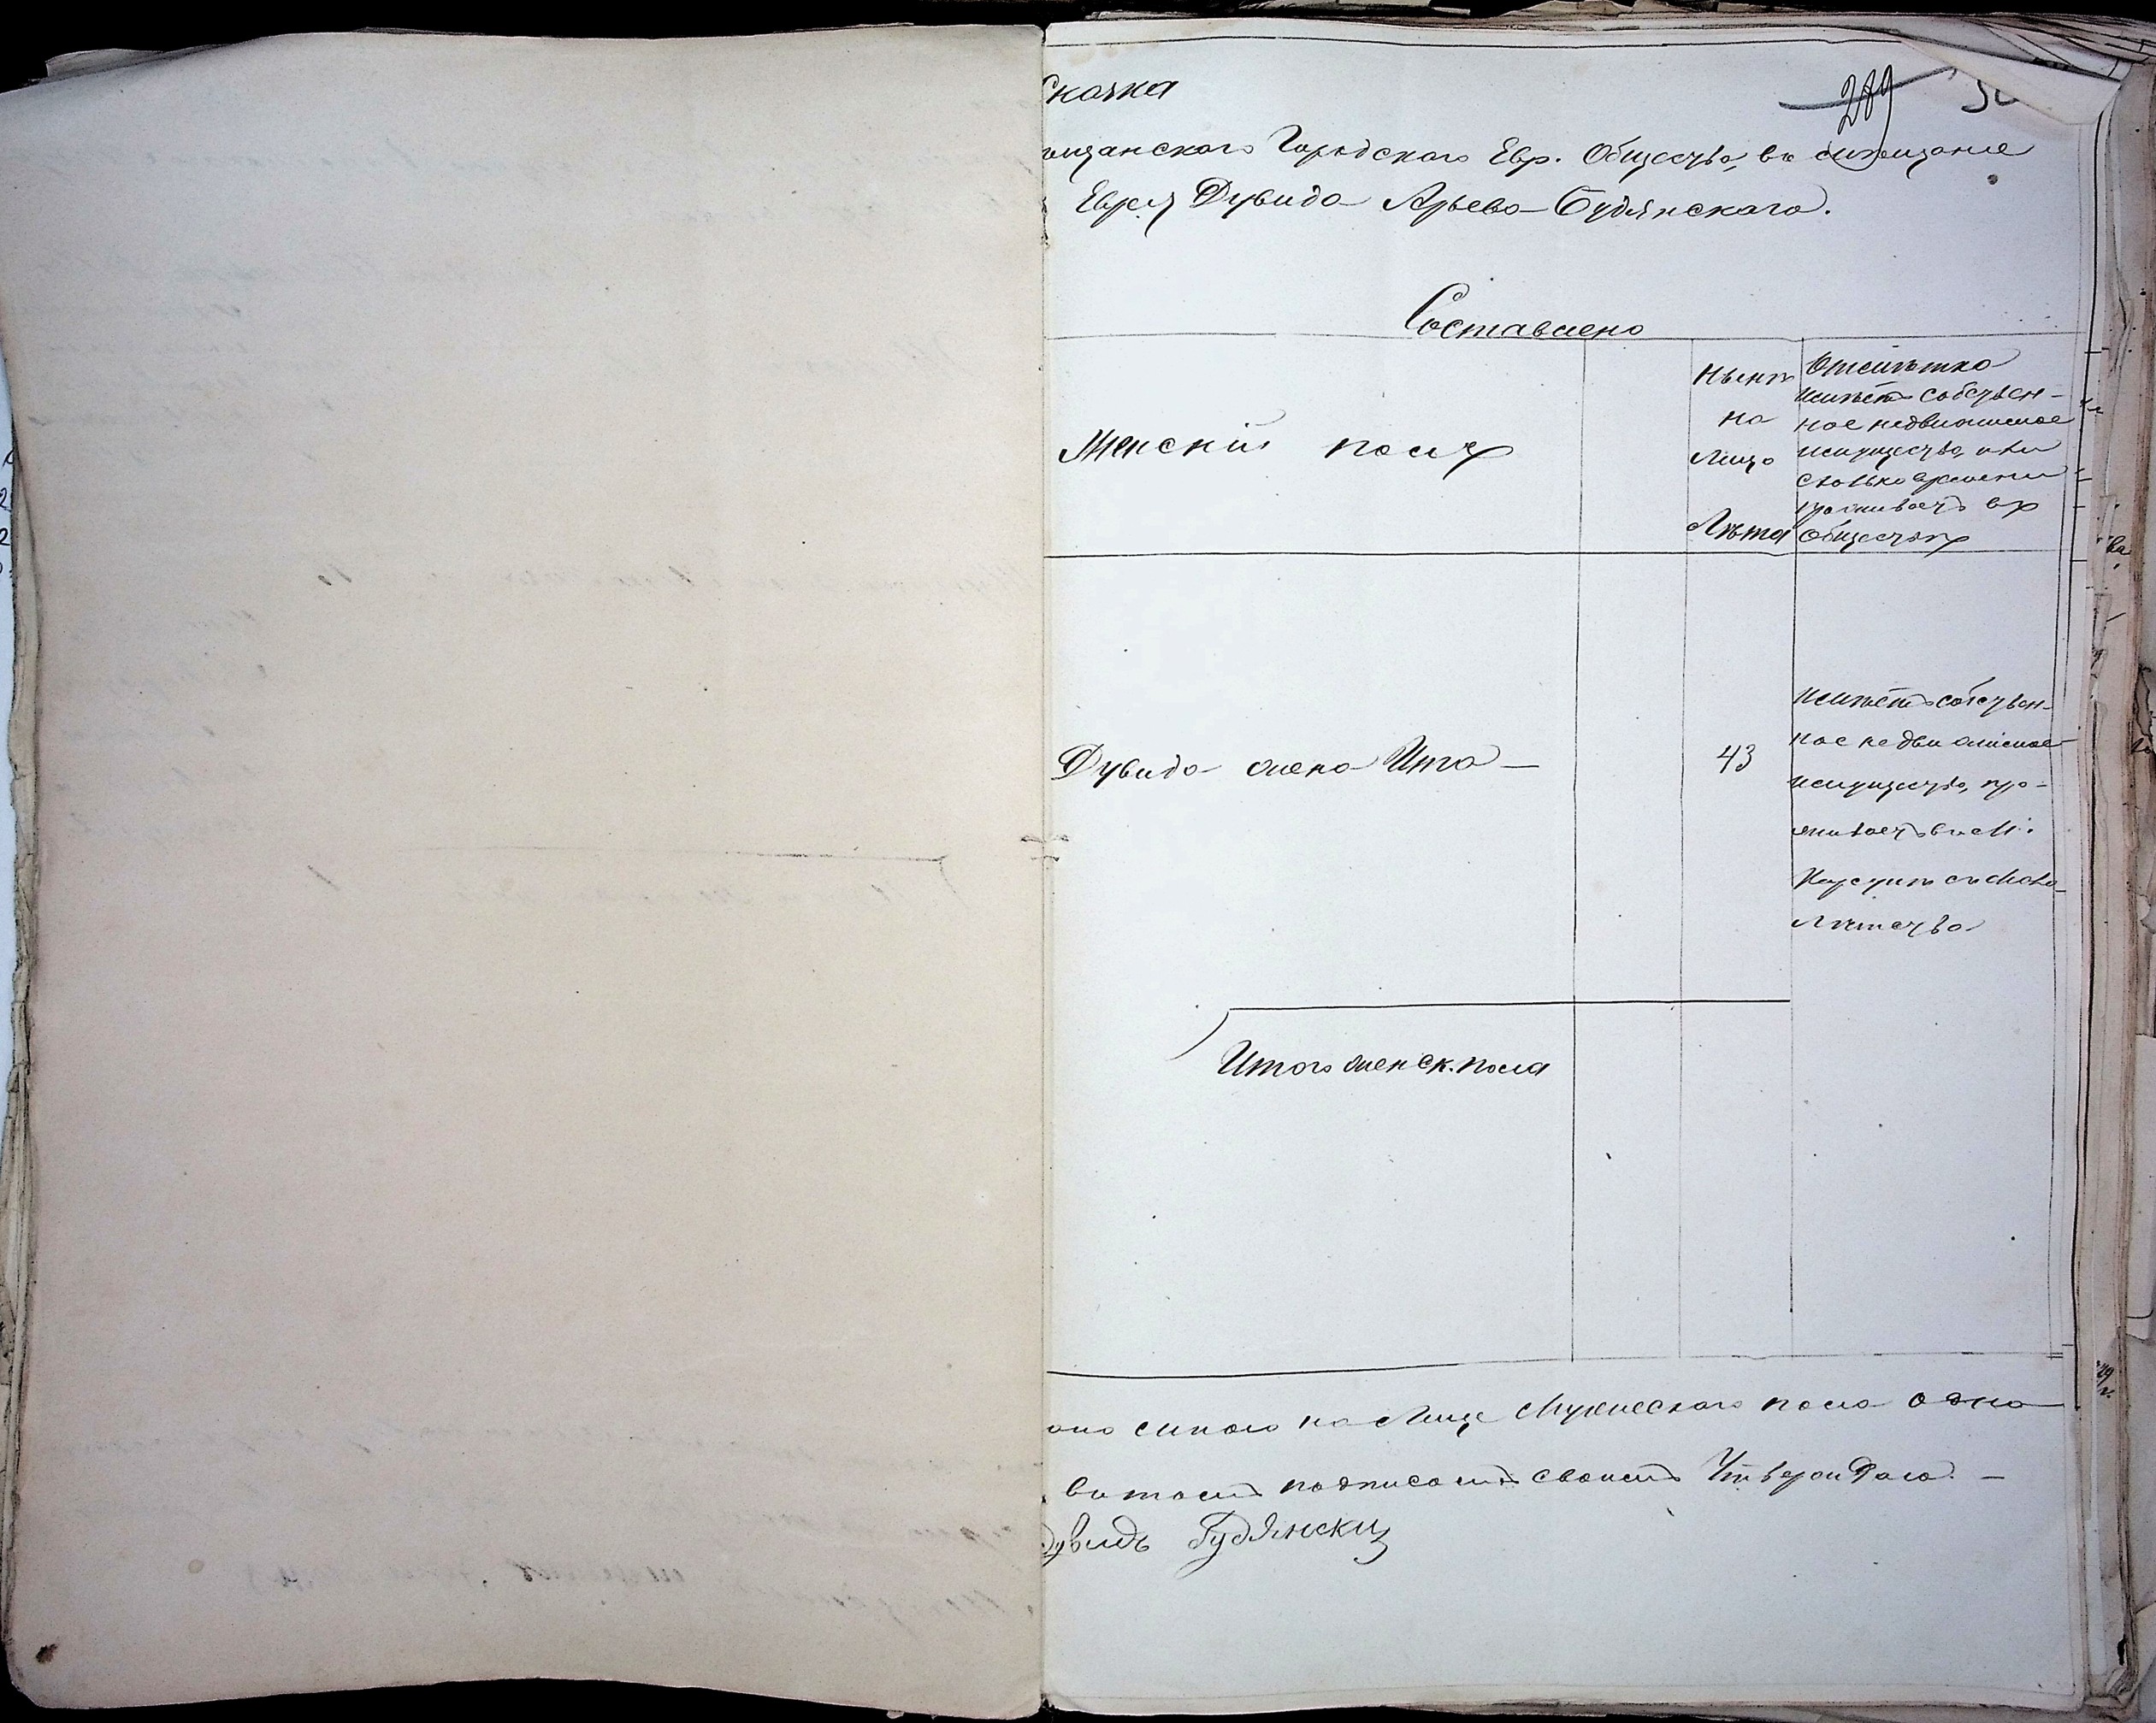 Сказка
289
мѣщанскаго Городскаго Евр. Общества, въ
Еврея Дувида Арьева Будянскаго.
Составлено
Женскій полъ
Нынѣ
на
лицо
Лѣта
Отмѣтка
имѣетъ собствен-
ное недвижимое
имущество, или
сколько времени
проживаетъ въ
Обществѣ
Дувида жена Ита —
43
имѣетъ собствен-
ное недвижимое
имущество, про-
живаетъ въ м.
съ мало-
лѣтства
Итого женск. пола
на лице Мужескаго пола одна
въ томъ подписомъ своимъ Утверждаю. —
Дувидъ Будянскій